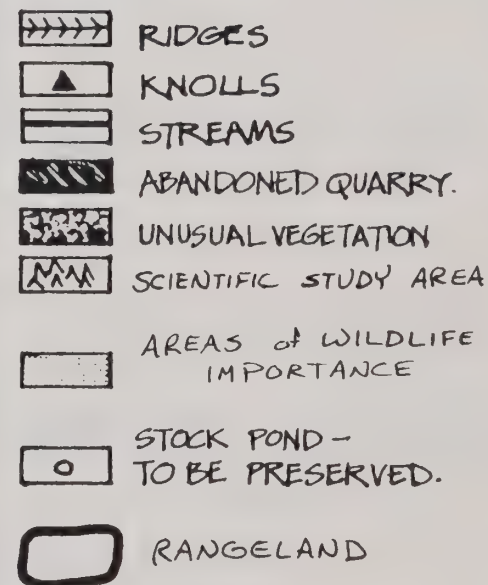 RIDGES
KNOLLS
STREAMS
ABANDONED QUARRY.
UNUSUAL VEGETATION
SCIENTIFIC STUDY AREA
AREAS of WILDLIFE
IMPORTANCE
STOCK POND -
TO BE PRESERVED.
RANGELAND